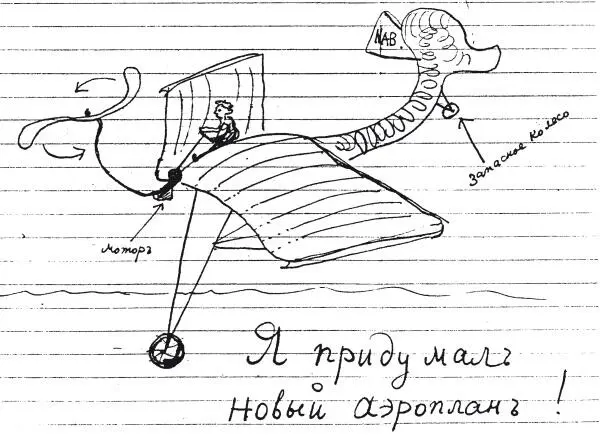 NAB.
Запасное колесо
Моторъ
Я придумалъ
Новый Аэропланъ!